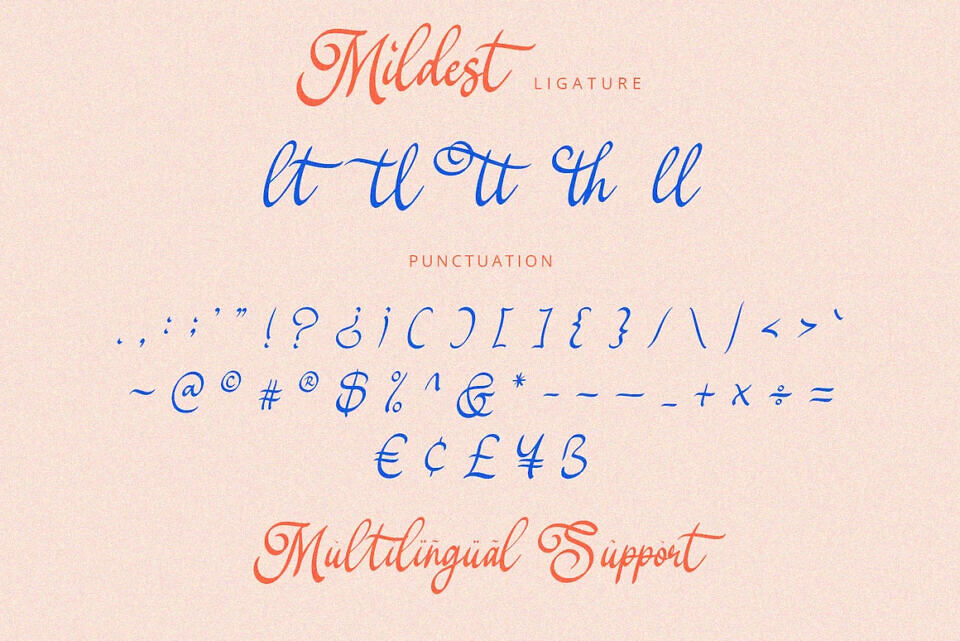 Mildest LIGATURE
lt tl tt th ll
PUNCTUATION
. , : ; ’ ” ! ? ¿ ¡ ( ) [ ] { } / \ | < > `
~ @ © # ® $ % ^ & * - – — _ + × ÷ =
€ ¢ £ ¥ ß
Mùltilïñgüãl Sùppòrt